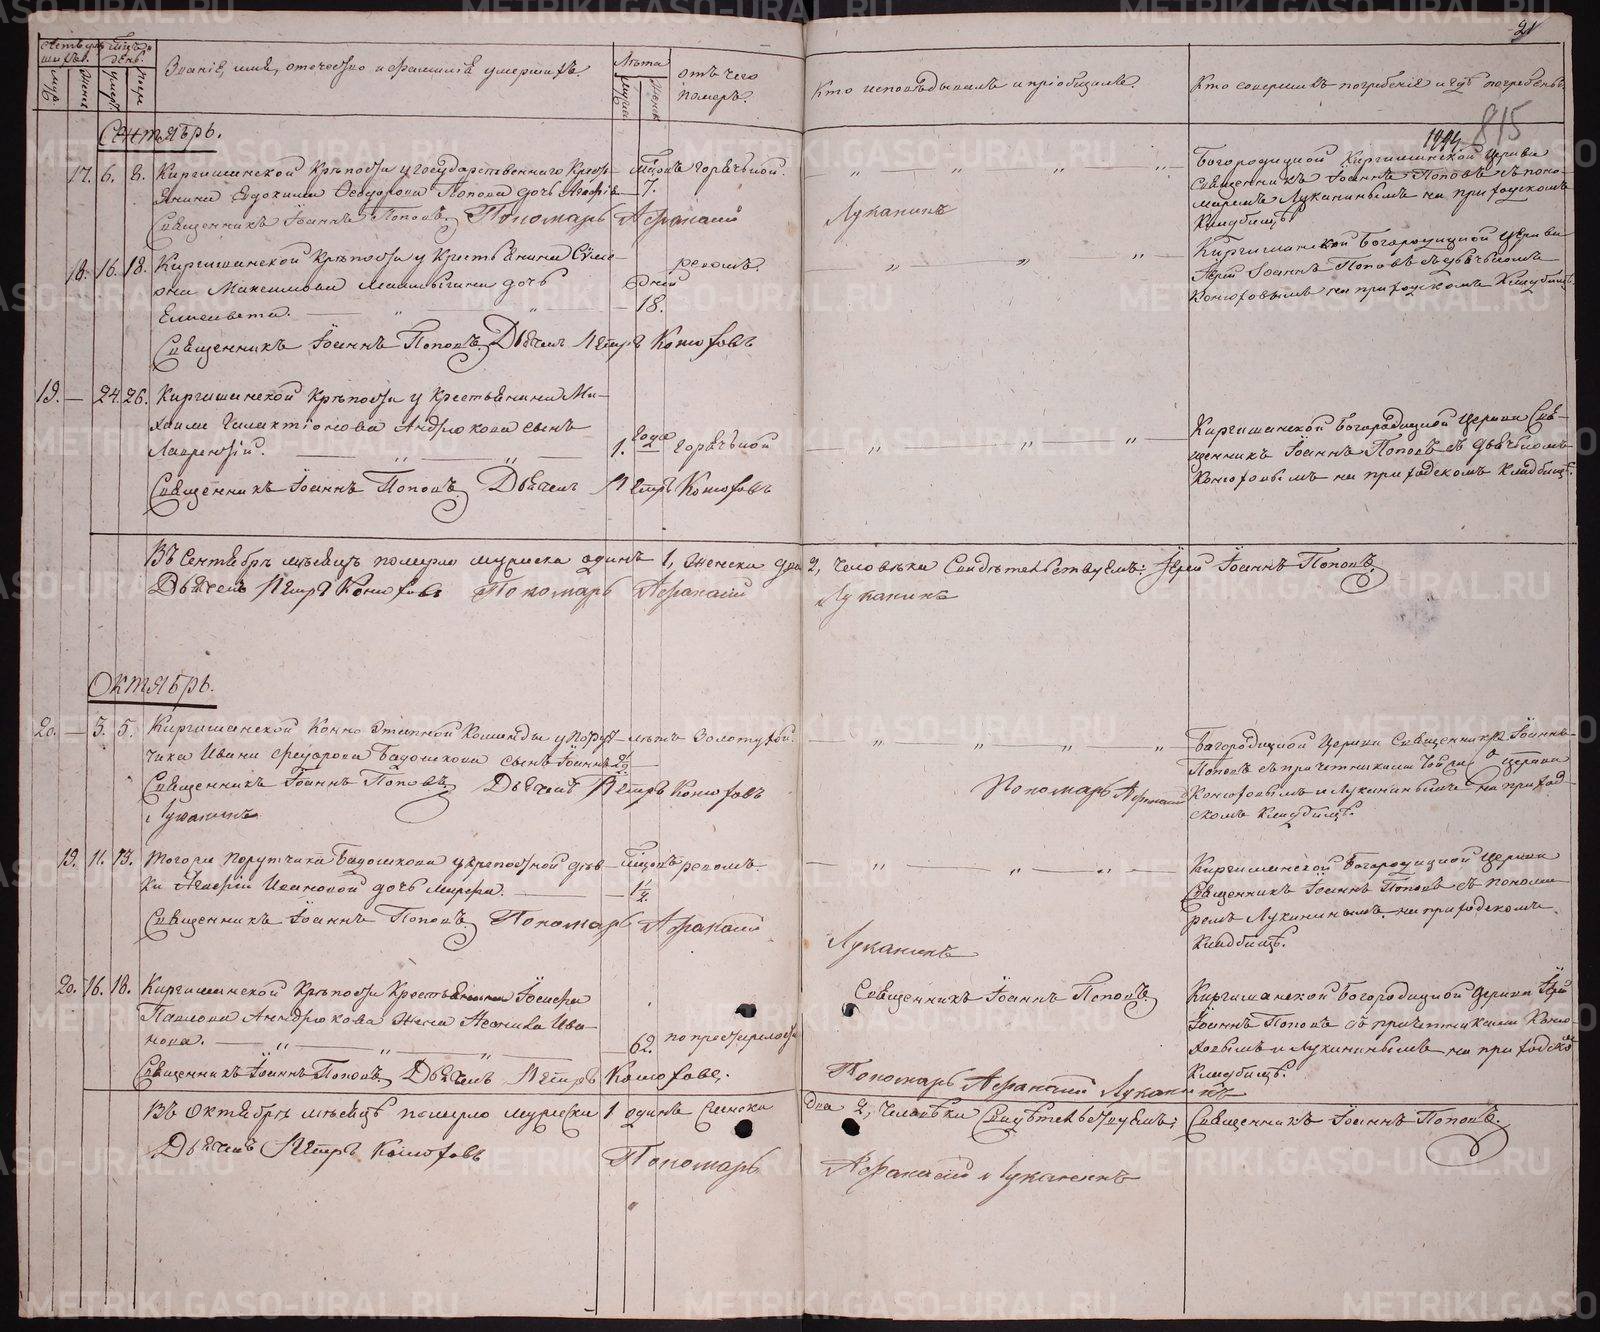 21
815
Званіе, имя, отечество и фамилія умершихъ.
Лѣта
отъ чего померъ.
Кто исповѣдывалъ и пріобщалъ.
Кто совершилъ погребеніе и гдѣ погребены.
Сентябрь.
17. 6. 8. Киргишанской Крѣпости у государственнаго Кресть-
янина Евдокима Ѳеодорова Попова дочь
7. горячкой.
Священникъ Іоаннъ Поповъ. Пономарь Афанасій Луканинъ
Богородицкой Киргишанской Церкви
Священникъ Іоаннъ Поповъ съ поно-
маремъ Луканинымъ на приходскомъ
Кладбищѣ
18. 16. 18. Киргишанской Крѣпости у Крестьянина Симе-
она Максимова дочь
Елисавета.
дней 18. ревомъ.
Священникъ Іоаннъ Поповъ. Дьячекъ Петръ Конюховъ
Киргишанской Богородицкой Церкви
Іерей Іоаннъ Поповъ съ дьячкомъ
Конюховымъ на приходскомъ Кладбищѣ.
19. — 24. 26. Киргишанской Крѣпости у Крестьянина Ми-
хаила Галактіонова Андрюкова сынъ
Лаврентій.
1. года горячкой
Священникъ Іоаннъ Поповъ. Дьячекъ Петръ Конюховъ
Киргишанской Богородицкой Церкви Свя-
щенникъ Іоаннъ Поповъ съ дьячкомъ
Конюховымъ на приходскомъ Кладбищѣ.
Въ Сентябрѣ мѣсяцѣ померло мужеска одинъ 1, женска два 2, человѣка Свидѣтельствуемъ: Іерей Іоаннъ Поповъ.
Дьячекъ Петръ Конюховъ Пономарь Афанасій Луканинъ
Октябрь.
20. — 3. 5. Киргишанской Конно Этапной Команды у Пору-
чика Ивана Федорова Бадошкова сынъ Іоаннъ
лѣтъ Золотухой.
Священникъ Іоаннъ Поповъ. Дьячекъ Петръ Конюховъ Пономарь Афанасій
Луканинъ
Богородицкой Церкви Священникъ Іоаннъ
Поповъ съ причетниками
Конюховымъ и Луканинымъ на приход-
скомъ Кладбищѣ.
19. 11. 13. Тогоже Порутчика Бадошкова у крепостной дѣв-
ки Ивановой дочь Марфа.
1/2 ревомъ.
Священникъ Іоаннъ Поповъ. Пономарь Афанасій
Луканинъ
Киргишанской Богородицкой Церкви
Священникъ Іоаннъ Поповъ съ понома-
ремъ Луканинымъ на приходскомъ
Кладбищѣ.
20. 16. 18. Киргишанской Крѣпости Іосифа
Павлова Андрюкова жена Ива-
нова.
62. по престарелости
Священникъ Іоаннъ Поповъ
Священникъ Іоаннъ Поповъ Дьячекъ Петръ Конюховъ. Пономарь Афанасій Луканинъ
Киргишанской Богородицкой Церкви Іерей
Іоаннъ Поповъ съ причетниками Коню-
ховымъ и Луканинымъ на приходскомъ
Кладбищѣ.
Въ Октябрѣ мѣсяцѣ померло мужеска 1 одинъ женска два 2, Человѣка Свидѣтельствуемъ; Священникъ Іоаннъ Поповъ.
Дьячекъ Петръ Конюховъ Пономарь Афанасій Луканинъ
METRIKI.GASO-URAL.RU